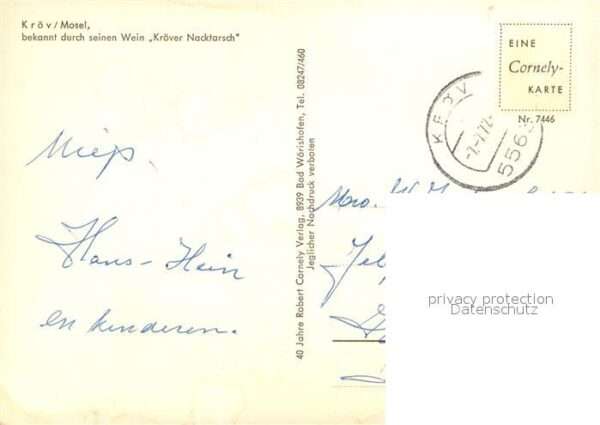 Kröv/Mosel,
bekannt durch seinen Wein „Kröver Nacktarsch"
EINE
Cornely-
KARTE
Nr. 7446
KRÖV
5563
Miep.
Hans-Hein
en kinderen.
40 Jahre Robert Cornely Verlag, 8939 Bad Wörishofen, Tel. 08247/460
Jeglicher Nachdruck verboten
privacy protection
Datenschutz